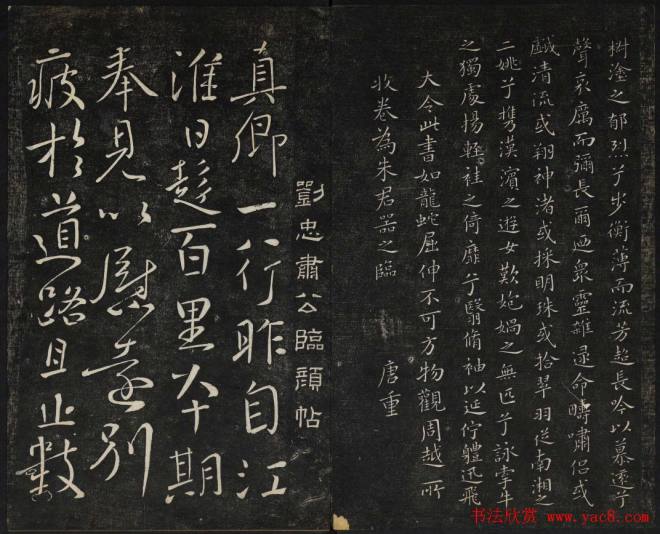 椒塗之郁烈兮步衡薄而流芳超長吟以慕遠兮
聲哀厲而彌長爾迺衆靈雜遝命疇嘯侶或
戲清流或翔神渚或採明珠或拾翠羽從南湘之
二姚兮攜漢濱之遊女歎炮媧之無匹兮詠牽牛
之獨處揚輕袿之倚靡兮翳脩袖以延佇軆迅飛
大令此書如龍蛇屈伸不可方物觀周越所
收卷為朱君器之臨
唐重
劉忠肅公臨顏帖
真卿一行昨自江
淮日趍百里本期
奉見以慰遠別
疲於道路且止數
书法欣赏 www.yac8.com